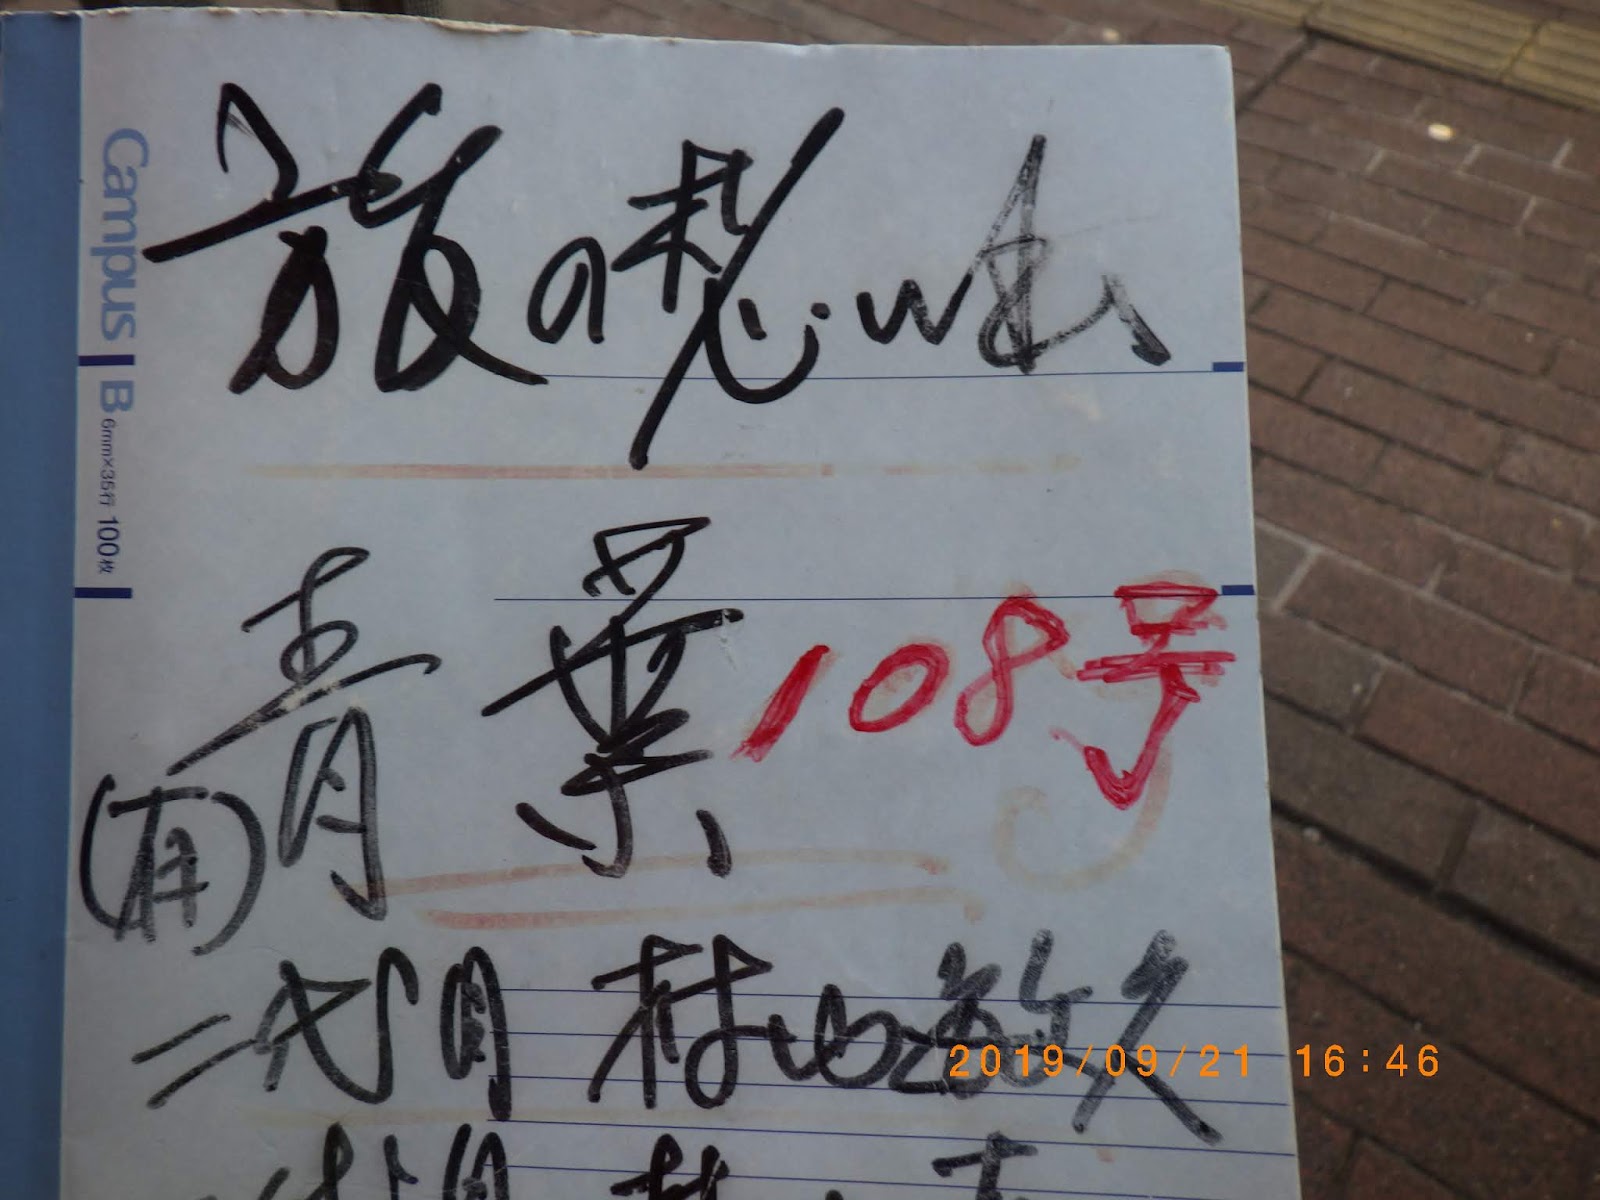 旅の想い出
青葉108号
(有)
二代目 村山敏久
Campus B 6mm×35行 100枚
2019/09/21 16:46